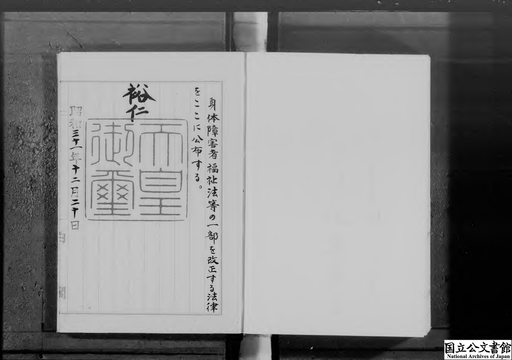 身体障害者福祉法等の一部を改正する法律
をここに公布する。
裕仁
天皇
御璽
昭和三十一年十二月二十日
内閣
国立公文書館
National Archives of Japan